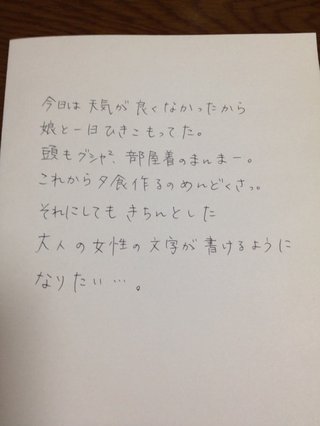 今日は天気が良くなかったから
娘と一日ひきこもってた。
頭もブシャブシャ、部屋着のまんまー。
これから夕食作るのめんどくさっ。
それにしてもきちんとした
大人の女性の文字が書けるように
なりたい…。